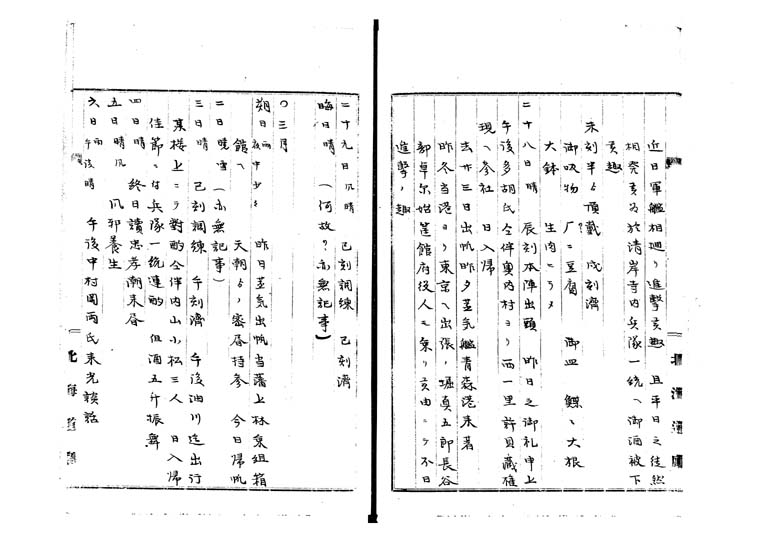 近日軍艦相廻リ進撃之趣 且平日之徒然
相発予ニ於清岸寺内兵隊一統ヘ御酒被下
之趣
未刻半ゟ頂戴 戌刻済
御吸物 豆腐 御皿 鰈ヽ大根
大鉢 生肉ニラメ
二十八日 晴 辰刻本陣出頭 昨日之御礼申上
午後多胡氏仝伴奥内村ヨリ一里許貝蔵権
現ヘ参社 日入帰
去廿三日出帆昨夕蒸気艦青森港来着
昨冬当港ヨリ東京ヘ出張ノ堀真五郎長谷
部卓尓始箱館府役人モ乗リ 由ニテ不日
進撃ノ趣
二十九日 風晴 巳刻訓練 巳刻済
晦日 晴 (何故?亦無記事)
〇三月
朔日 雨夜中少 昨日蒸気出帆当藩上林乗組箱
館ヘ 天朝ゟノ密届持参 今日帰帆
二日 曉雪 (亦無記事)
三日 晴 巳刻訓練 午刻済 午後油川迄出行
某楼上ニテ対酌仝伴内山小松三人 日入帰
佳節ニ付兵隊一統運動 但酒五斤振舞
四日 晴 終日読忠孝潮来届
五日 晴風 風邪養生
六日 雨午後晴 午後中村岡両氏来光談話